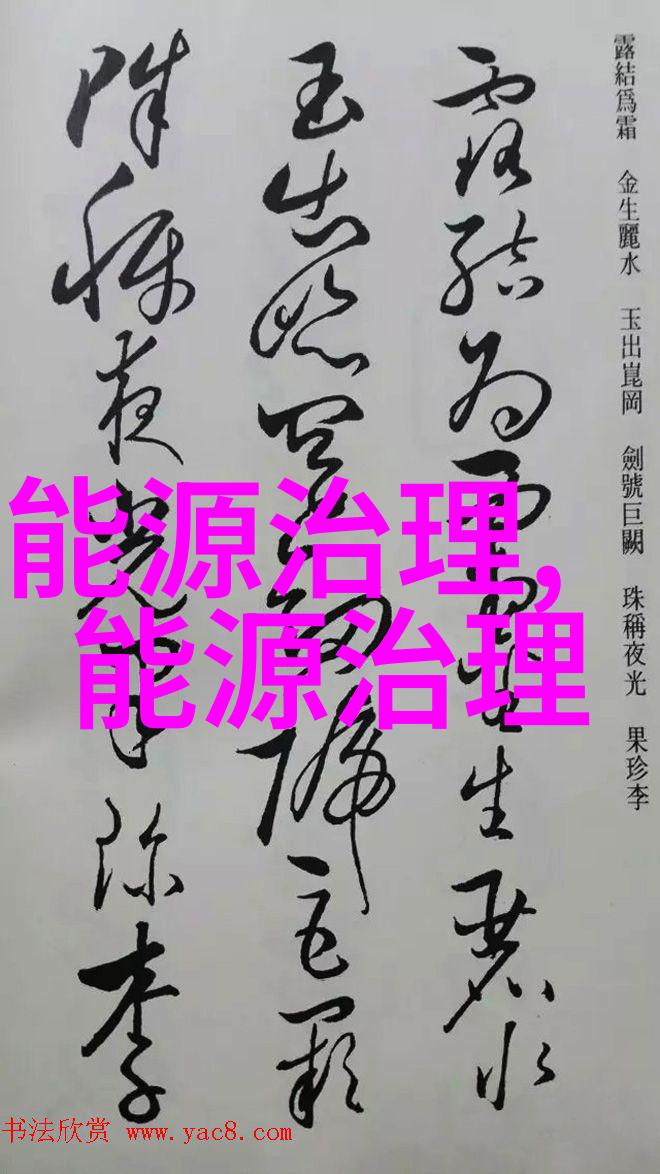 露結爲霜 金生麗水 玉出崑岡 劍號巨闕 珠稱夜光 果珍李
露結為霜金生麗水
玉出崑岡劍號巨闕
珠稱夜光果珍李
能源治理,
能源治理
书法欣赏 www.yac8.com